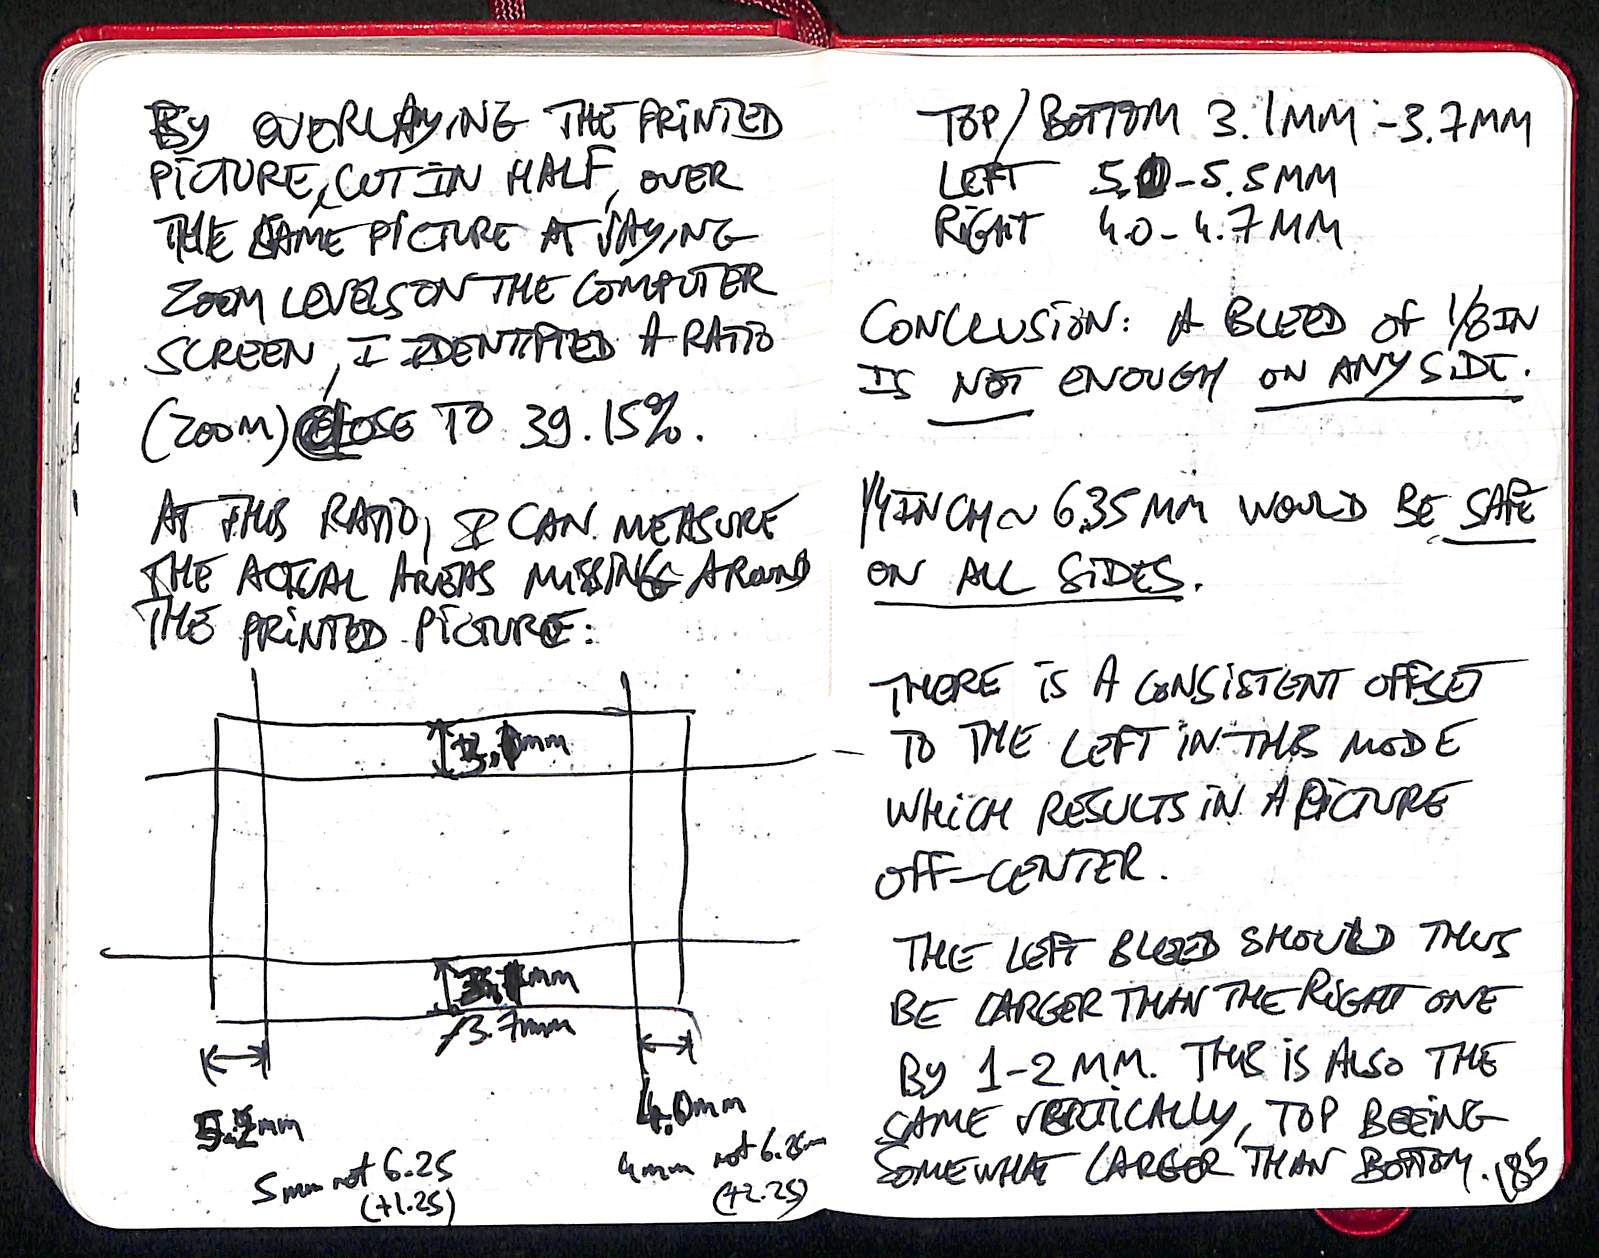 BY OVERLAYING THE PRINTED
PICTURE, CUT IN HALF, OVER
THE SAME PICTURE AT VAYING
ZOOM LEVELS ON THE COMPUTER
SCREEN, I IDENTIFIED A RATIO
(ZOOM) CLOSE TO 39.15%.
AT THIS RATIO, I CAN MEASURE
THE ACTUAL AREAS MISSING AROUND
THE PRINTED PICTURE:
mm
mm
/3.7mm
5.2mm
4.0mm
5mm not 6.25
(+1.25)
4mm not 6.25mm
(+2.25)
TOP/BOTTOM 3.1MM-3.7MM
LEFT 5.0-5.5MM
RIGHT 4.0-4.7MM
CONCLUSION: A BLEED OF 1/8IN
IS NOT ENOUGH ON ANY SIDE.
1/4INCH~6.35MM WOULD BE SAFE
ON ALL SIDES.
THERE IS A CONSISTENT OFFSET
TO THE LEFT IN THIS MODE
WHICH RESULTS IN A PICTURE
OFF-CENTER.
THE LEFT BLEED SHOULD THUS
BE LARGER THAN THE RIGHT ONE
BY 1-2MM. THIS IS ALSO THE
SAME VERTICALLY, TOP BEEING
SOMEWHAT LARGER THAN BOTTOM.
185